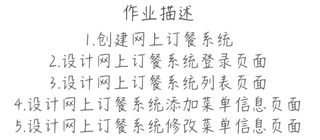 作业描述
1.创建网上订餐系统
2.设计网上订餐系统登录页面
3.设计网上订餐系统列表页面
4.设计网上订餐系统添加菜单信息页面
5.设计网上订餐系统修改菜单信息页面